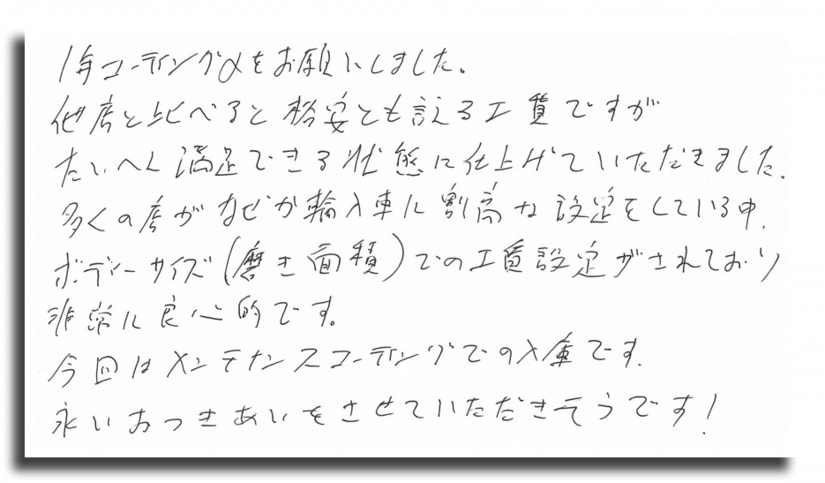 1年コーティングαをお願いしました。
他店と比べると格安とも言える工賃ですが
たいへん満足できる状態に仕上げていただきました.
多くの店がなぜか輸入車に割高な設定をしている中,
ボディーサイズ(磨き面積)での工賃設定がされており
非常に良心的です。
今回はメンテナンスコーティングでの入庫です.
永いおつきあいをさせていただきそうです!